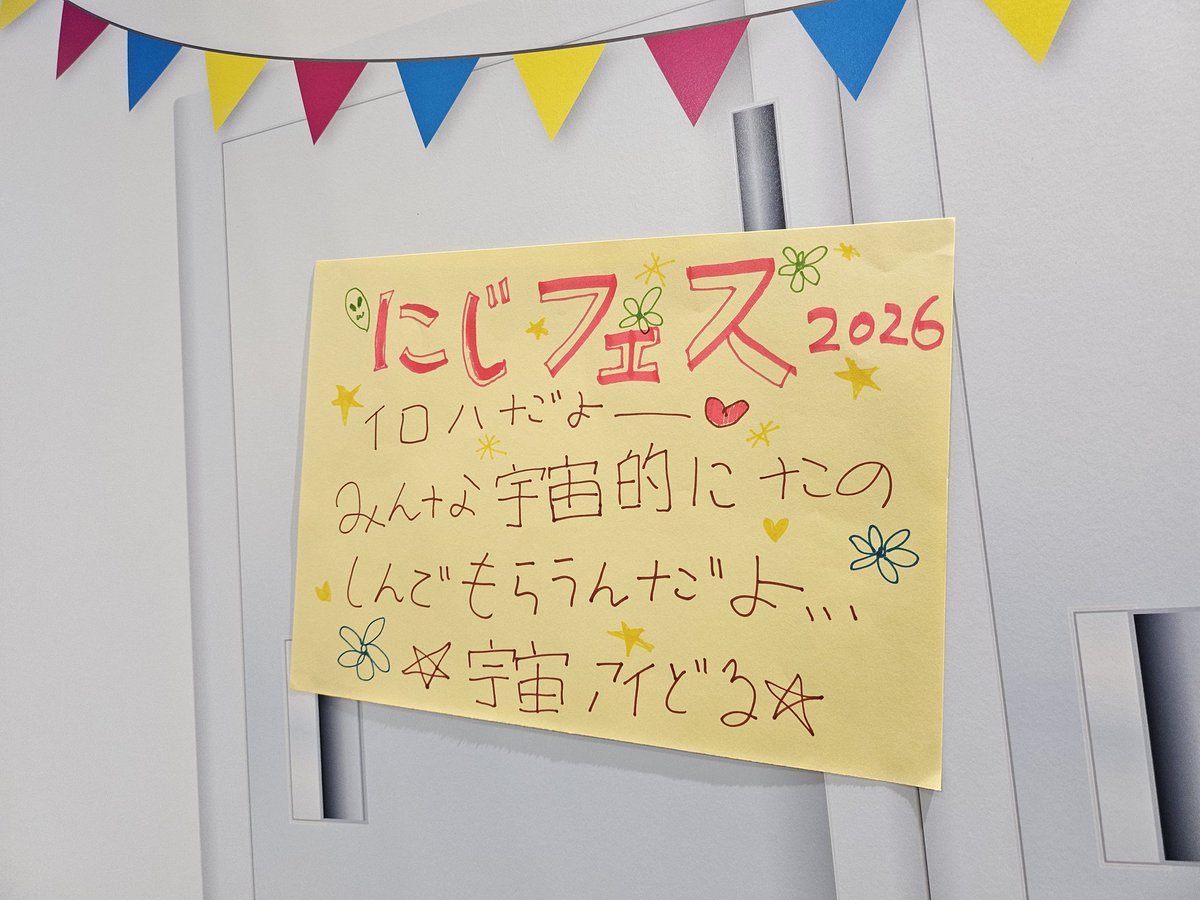 にじフェス 2026
イロハだよー
みんな宇宙的にたの
しんでもらうんだよ...
☆宇宙アイどる☆